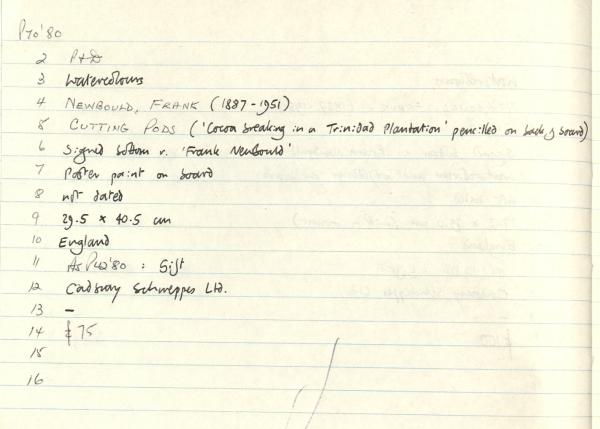 P70'80
2 P+D
3 Watercolours
4 NEWBOULD, FRANK (1887-1951)
5 CUTTING PODS ('Cocoa breaking in a Trinidad Plantation' pencilled on back of board)
6 Signed bottom r. 'Frank Newbould'
7 Poster paint on board
8 not dated
9 29.5 x 40.5 cm
10 England
11 As P42'80 : Gift
12 Cadbury Schweppes Ltd.
13 –
14 £75
15
16